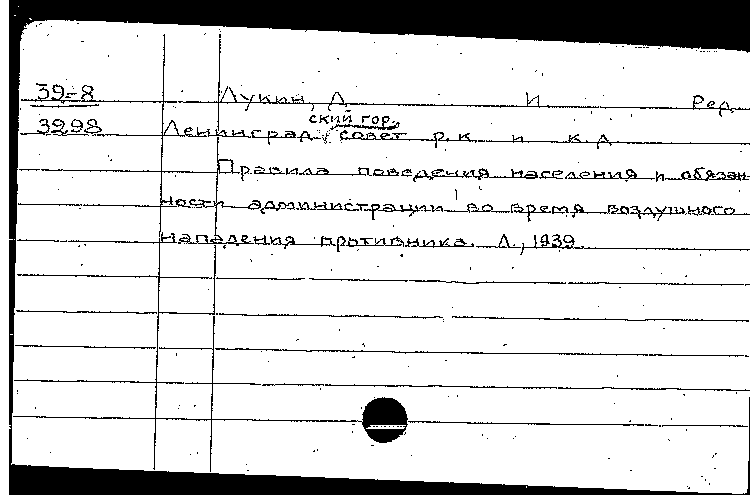 39-8 Лукин, Л. И Ред.
ский гор.
3298 Ленинград. совет р. к и к. д
Правила поведения населения и обязан-
ности администрации во время воздушного
нападения противника. Л., 1939